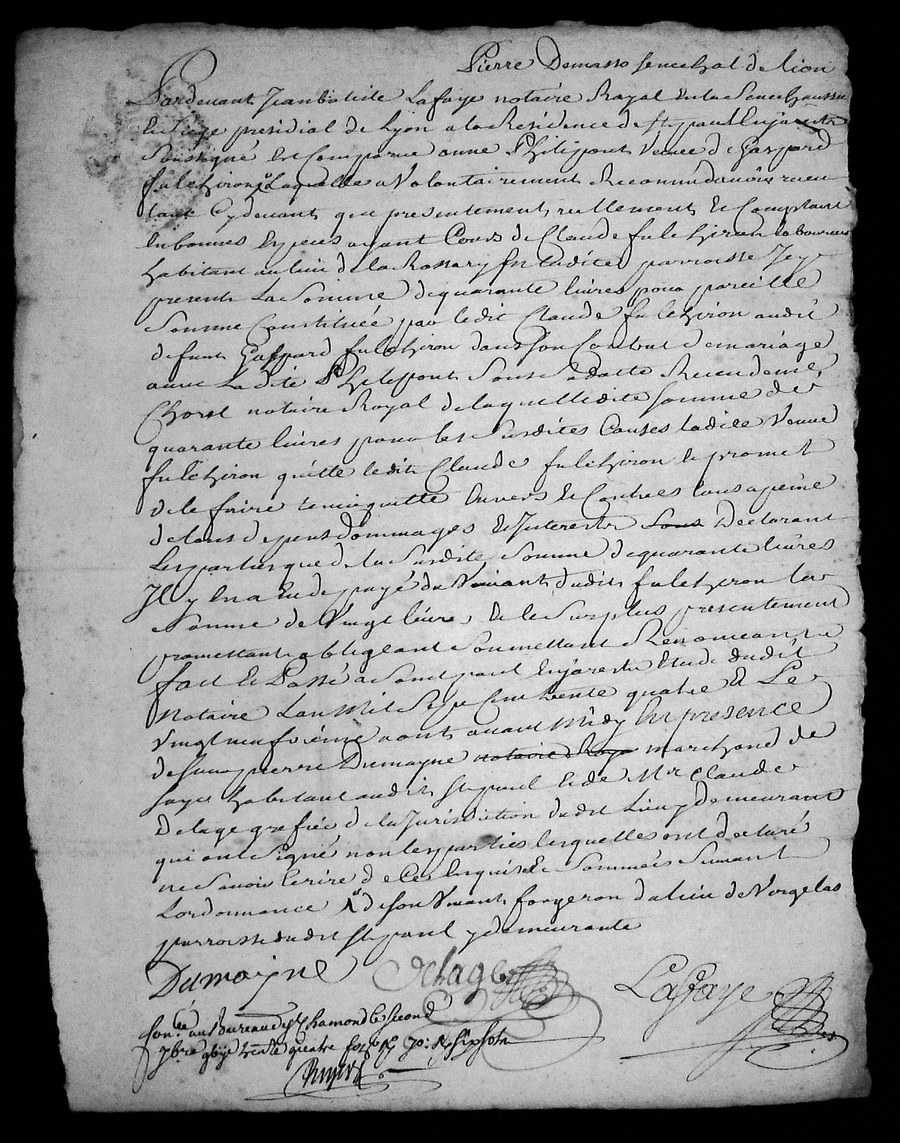 Pierre Demasso senechal de lion
Pardevant Jean batiste Lafaye notaire Royal En la Senechaussee
et Siege presidial de Lyon a la Residence de st paul En jarestz
Soussigné Est Comparue anne Philippont Veuve de Gaspard
fulchiron Laquelle a Volontairement Reconnu davoir receu
tant Cydevant que presentement reellement et Comptant
En bonnes Especes ayant Cours de Claude fulchiron laboureur
habitant au lieu de la Rossary En ladite parroisse Icy
present La Somme de quarante livres pour pareille
Somme Constituée par ledit Claude fulchiron audit
defunt Gaspard fulchiron dans son Contrat de mariage
avec Ladite Philippont Sous sa datte Receu de me
notaire Royal de laquelle dite Somme de
quarante livres pour les Susdites Causes ladite Veuve
fulchiron quitte ledit Claude fulchiron et promet
de le faire tenir quitte Envers et Contre tous a peine
de tous depens dommages et Interests sous Declarant
Les parties que de la Susdite Somme de quarante livres
Il y En a Eu de payé du Vivant dudit fulchiron la
Somme de Vingt livres et le Surplus presentement
promettant obligeant Soumettant Renonceant
fait et Passé a Saint paul En jarestz Etude dudit
Notaire Lan Mil Sept Cent trente quatre et Le
Vingt neufvieme aout avant Midy En presence
de pierre Dumayne notaire Royal marchand de
soyes habitant audit st paul et de Mr Claude
Delage grefier de la Jurisdiction dudit Lieu y demeurant
qui ont Signé non les parties lesquelles ont declaré
ne Savoir Ecrire de ce Enquises et Sommées Suivant
Lordonnance de son Vivant forgeron du lieu de Vergelas
parroisse dudit st paul y demeurante
Dumaine Delage Lafaye
Conlé au Bureau de st Chamond le second
7bre mil sept trente quatre R. six sols